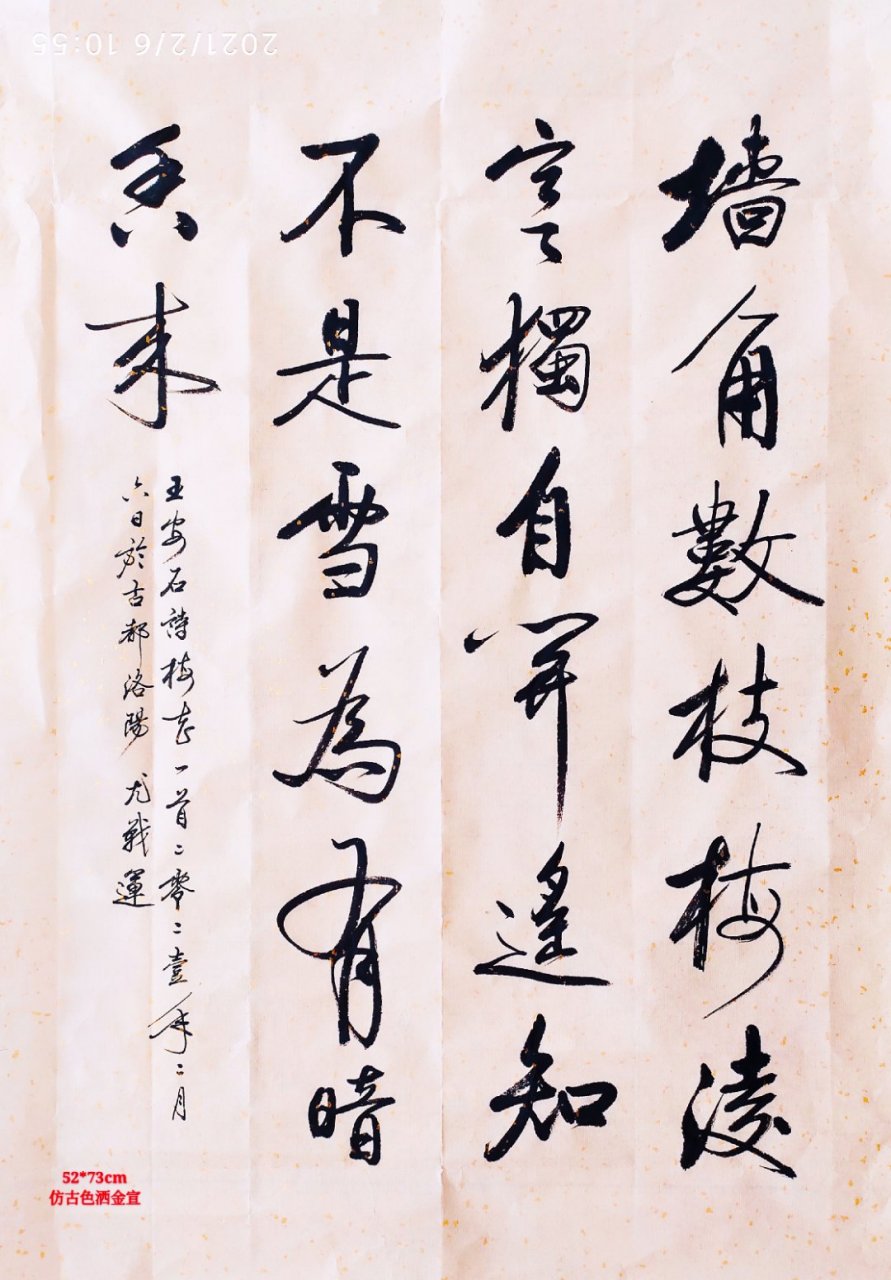 墙角數枝梅淩
寒獨自開遙知
不是雪為有暗
香来
王安石詩梅花一首二零二壹年二月
六日於古都洛陽 尤戰運
2021/2/6 10:55
52*73cm
仿古色洒金宣